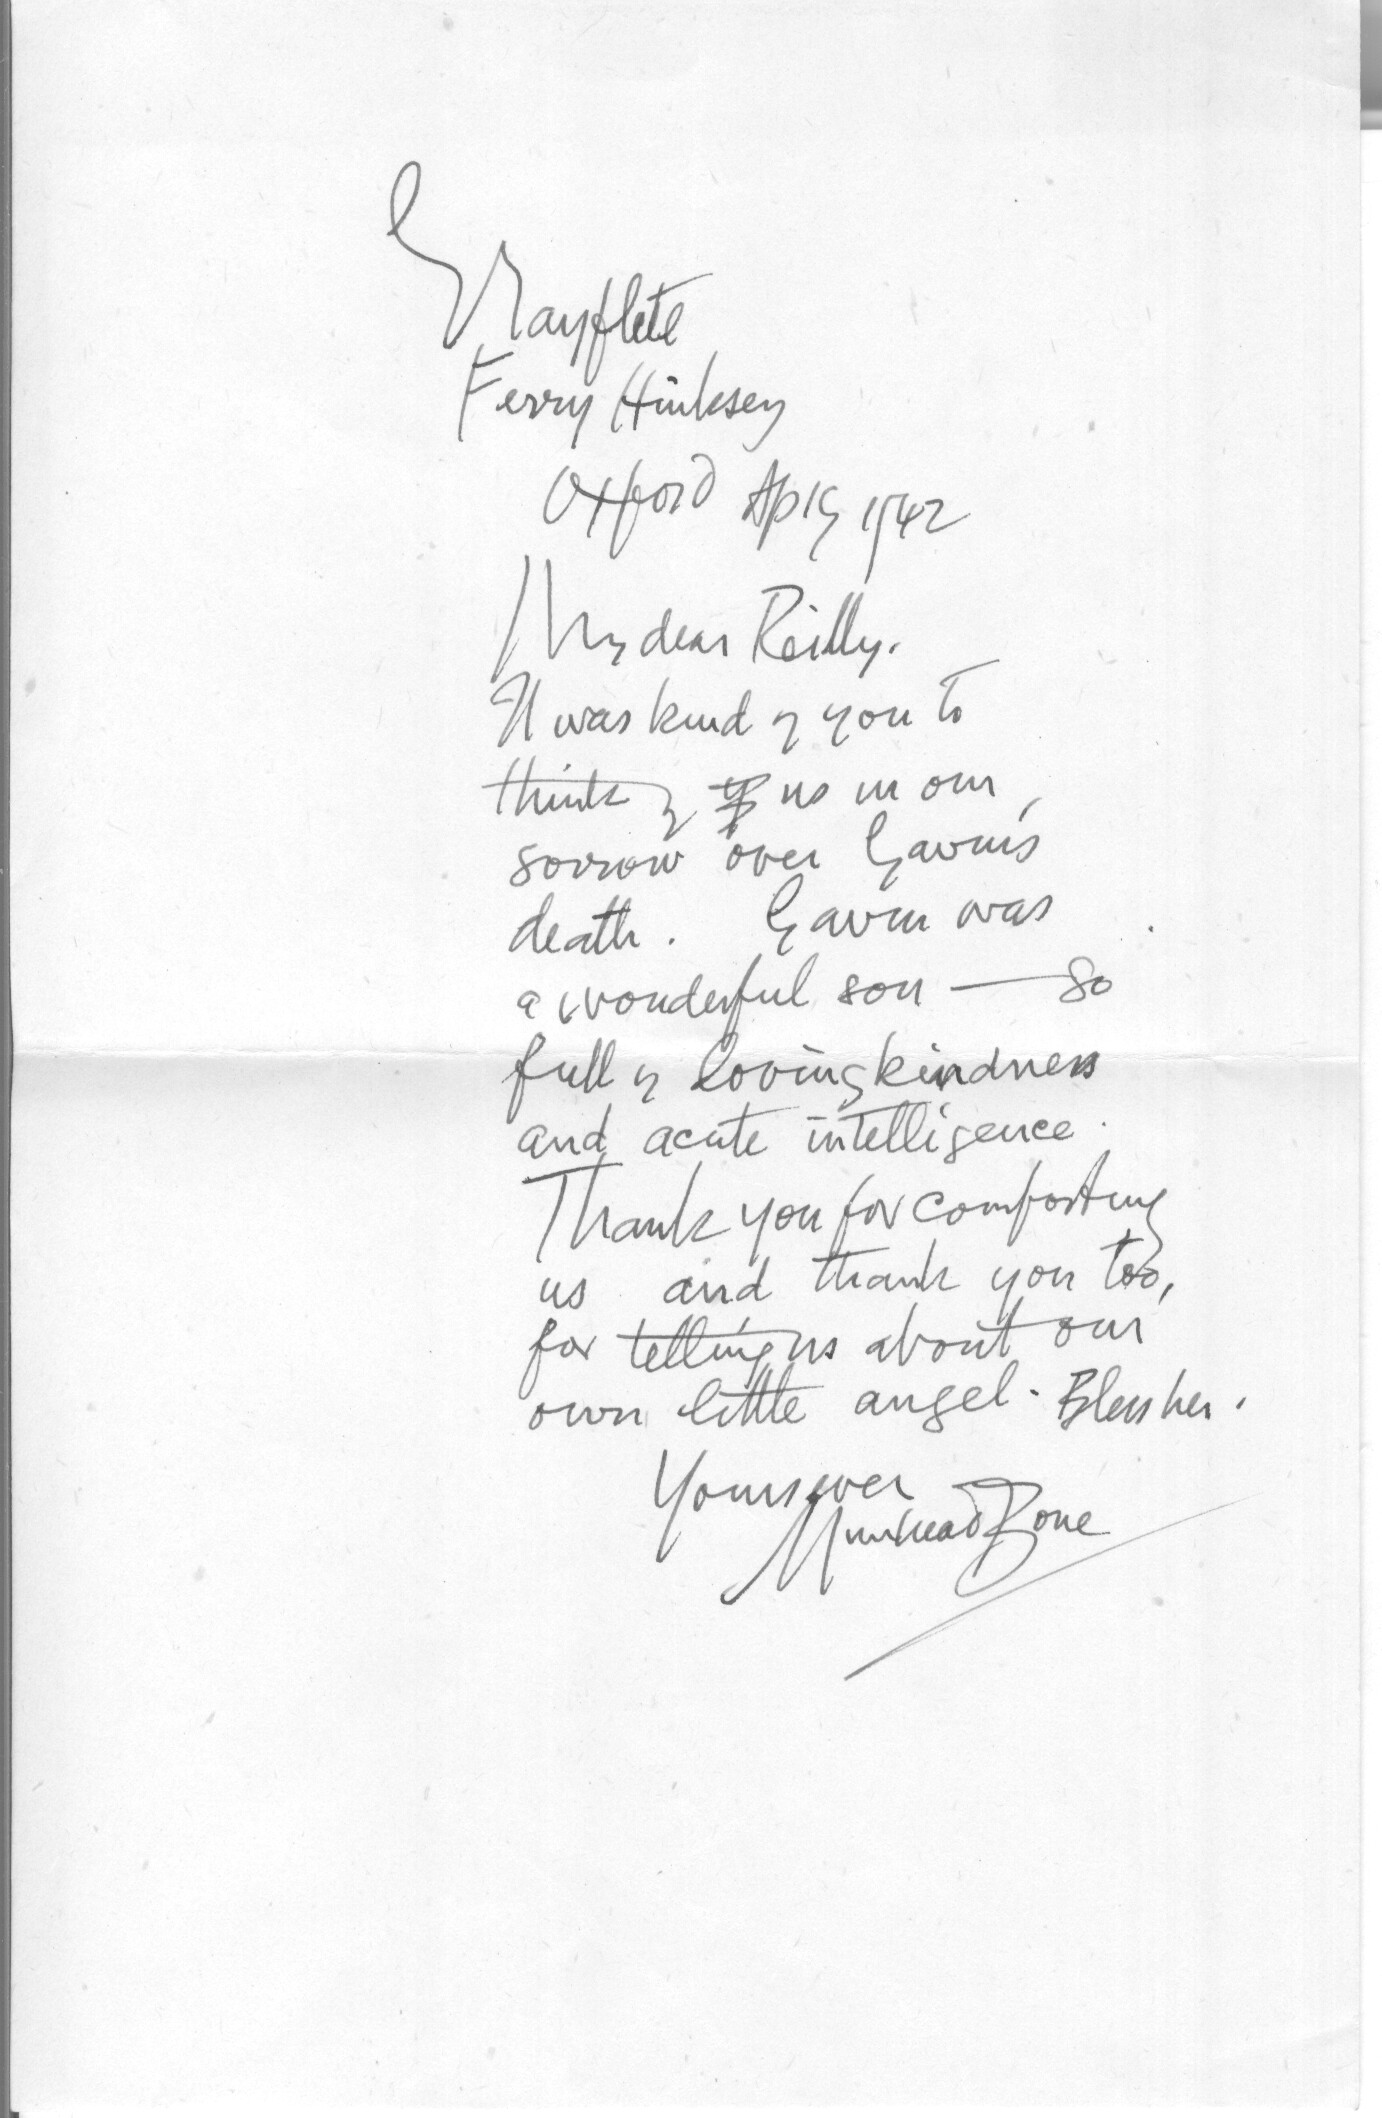 Grayflete
Ferry Hinksey
Oxford Ap 19 1942
My dear Reilly.
It was kind of you to
think of us in our
sorrow over Gavin's
death. Gavin was
a wonderful son — so
full of lovingkindness
and acute intelligence.
Thank you for comforting
us and thank you too,
for telling us about our
own little angel. Bless her.
Yours ever
Muirhead Bone